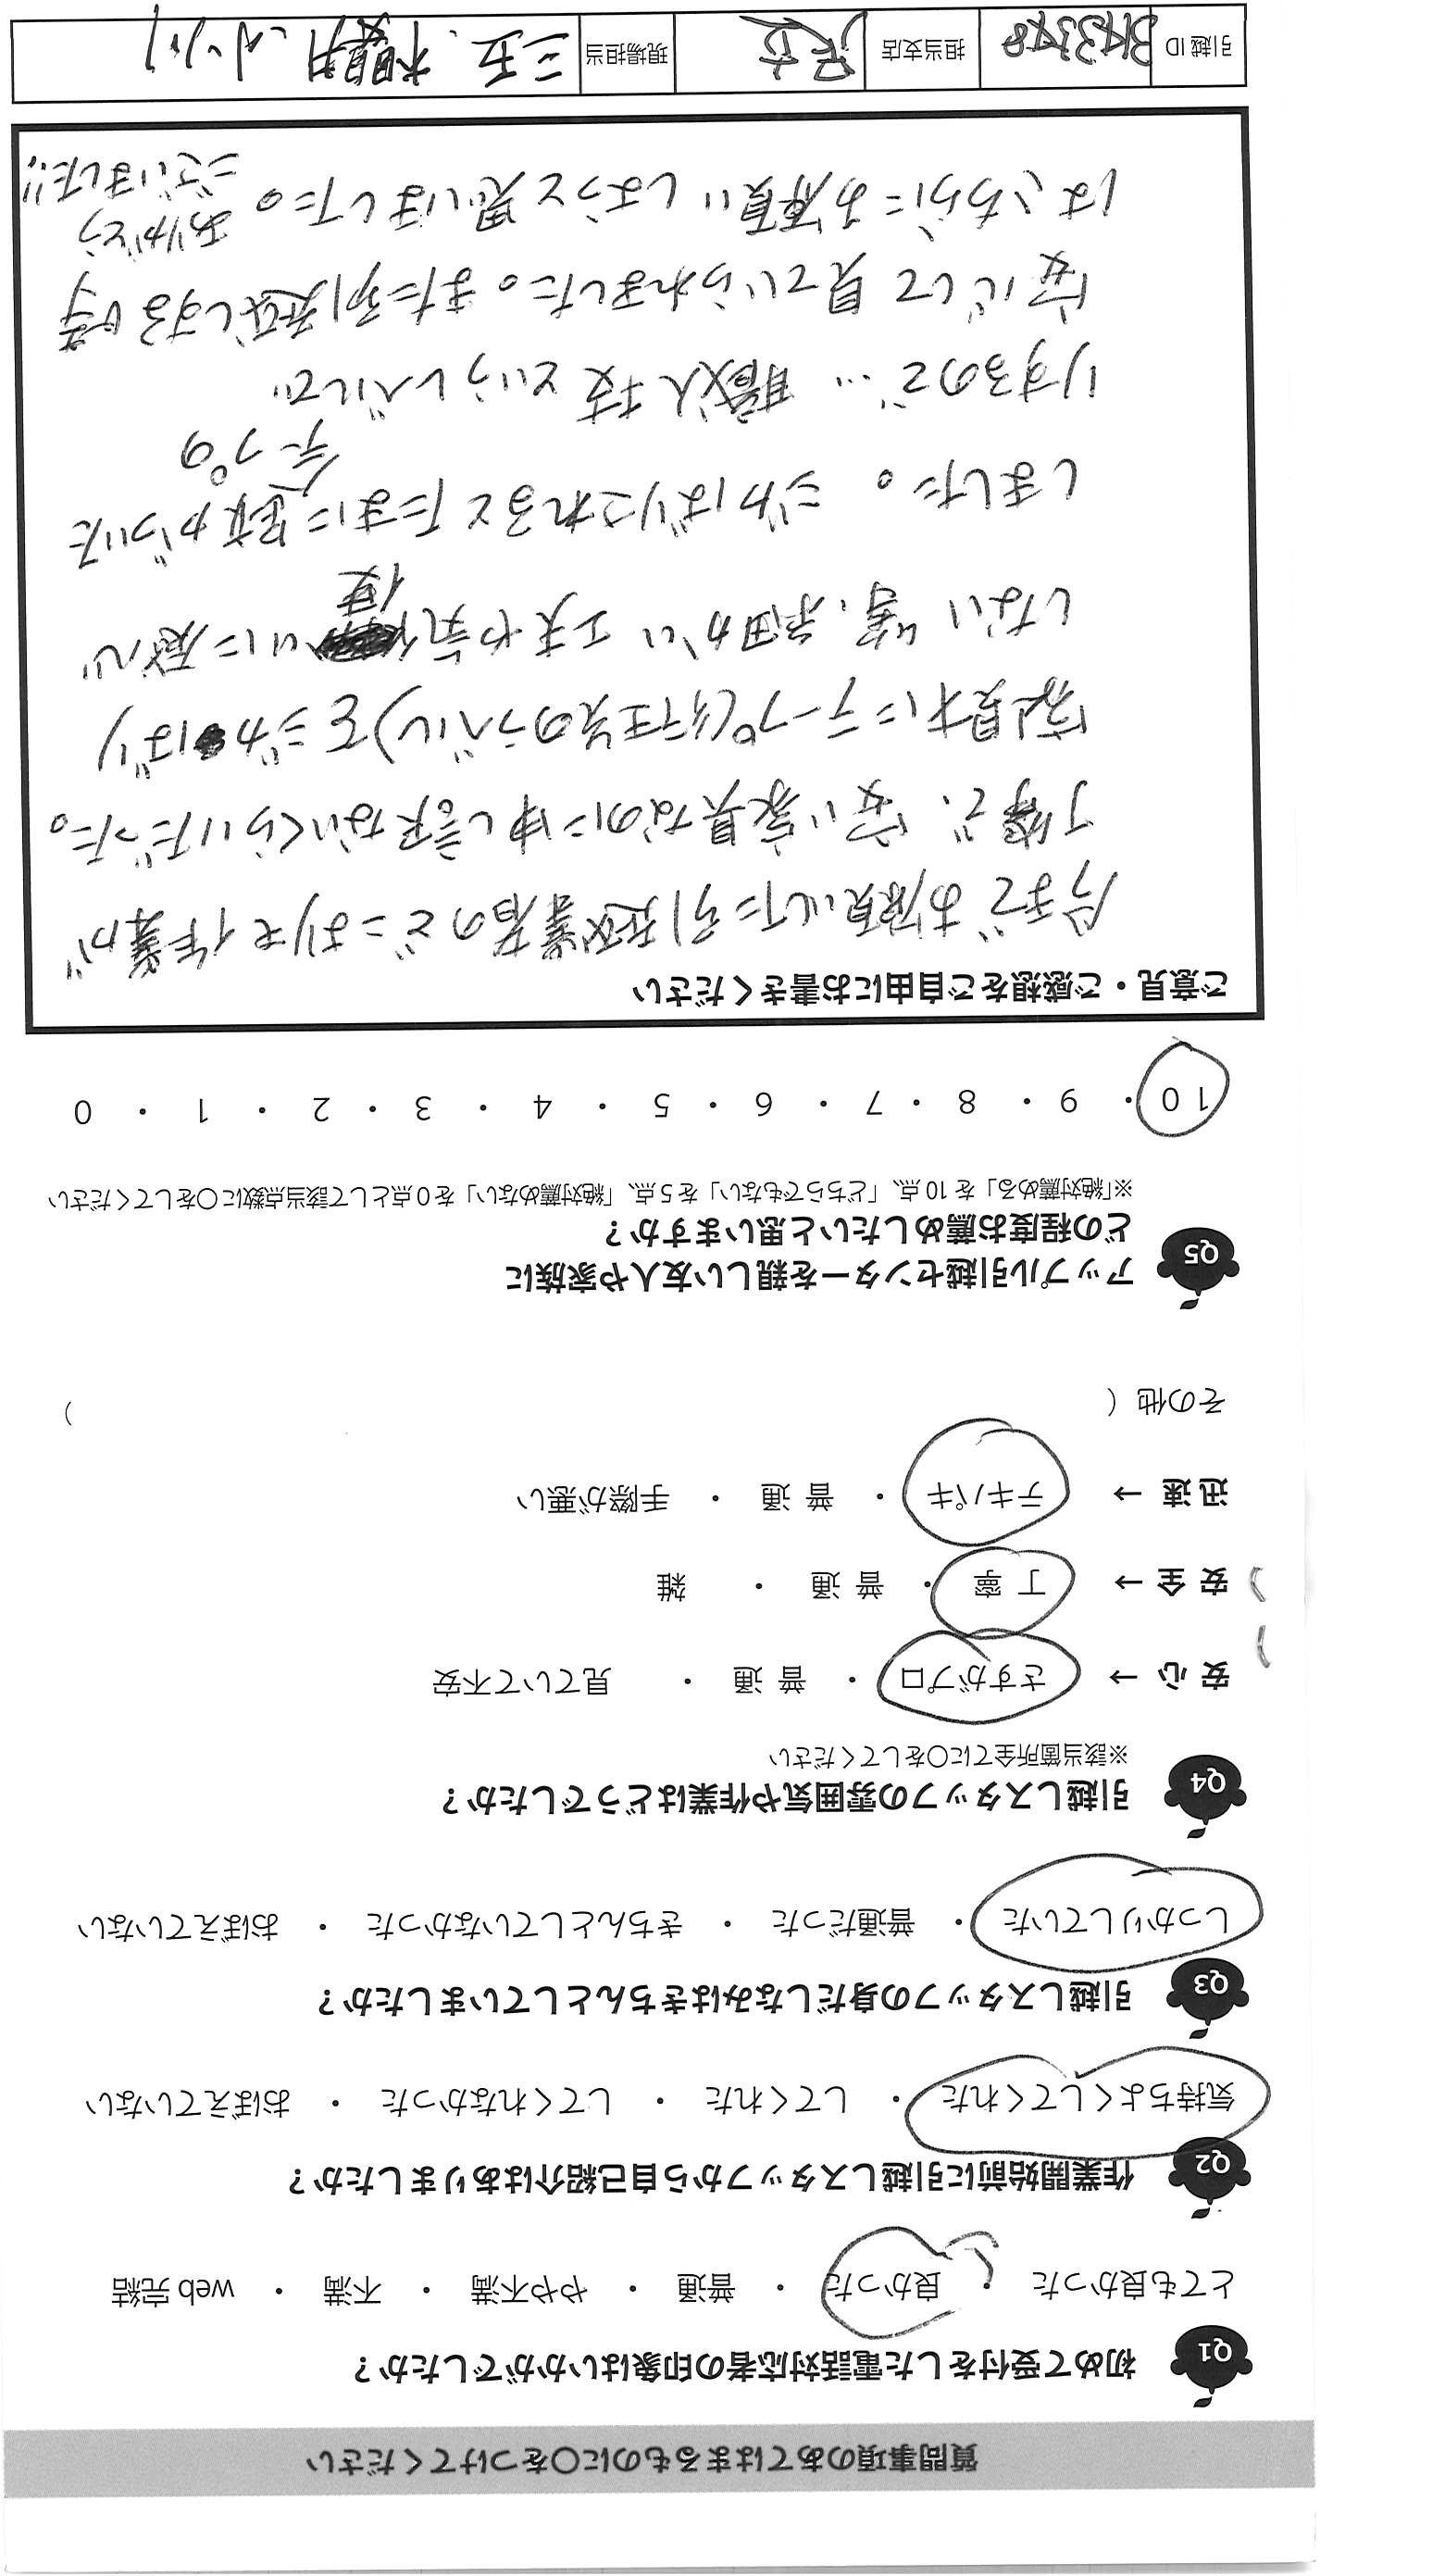 質問事項のあてはまるものに○をつけてください
Q1 初めて受付をした電話対応者の印象はいかがでしたか？
とても良かった ・ 良かった ・ 普通 ・ やや不満 ・ 不満 ・ web 完結
Q2 作業開始前に引越しスタッフから自己紹介はありましたか？
気持ちよくしてくれた ・ してくれた ・ してくれなかった ・ おぼえていない
Q3 引越しスタッフの身だしなみはきちんとしていましたか？
しっかりしていた ・ 普通だった ・ きちんとしていなかった ・ おぼえていない
Q4 引越しスタッフの雰囲気や作業はどうでしたか？
※該当箇所全てに○をしてください
安 心 → さすがプロ ・ 普 通 ・ 見ていて不安
安 全 → 丁 寧 ・ 普 通 ・ 雑
迅 速 → テキパキ ・ 普 通 ・ 手際が悪い
その他（ ）
Q5 アップル引越センターを親しい友人や家族に
どの程度お薦めしたいと思いますか？
※「絶対薦める」を 10 点、「どちらでもない」を 5 点、「絶対薦めない」を 0 点として該当点数に○をしてください
10 ・ 9 ・ 8 ・ 7 ・ 6 ・ 5 ・ 4 ・ 3 ・ 2 ・ 1 ・ 0
ご意見・ご感想をご自由にお書きください
今までお願いした引越業者のどこよりも作業が
丁寧で、安い家具なのに申し訳ないくらいだった。
家具にテープ(行先のラベル)をじかばり
しない等、細かい工夫や気使いに感心
しました。じかばりされるとたまに跡がついた
テープの
りするので… 職人技というレベルで
安心して見ていられました。また引越しする時
はこちらにお願いしようと思いました。ありがとう
ございました!!
引越 ID 担当支店 足立 現場担当 三五、相馬、小川